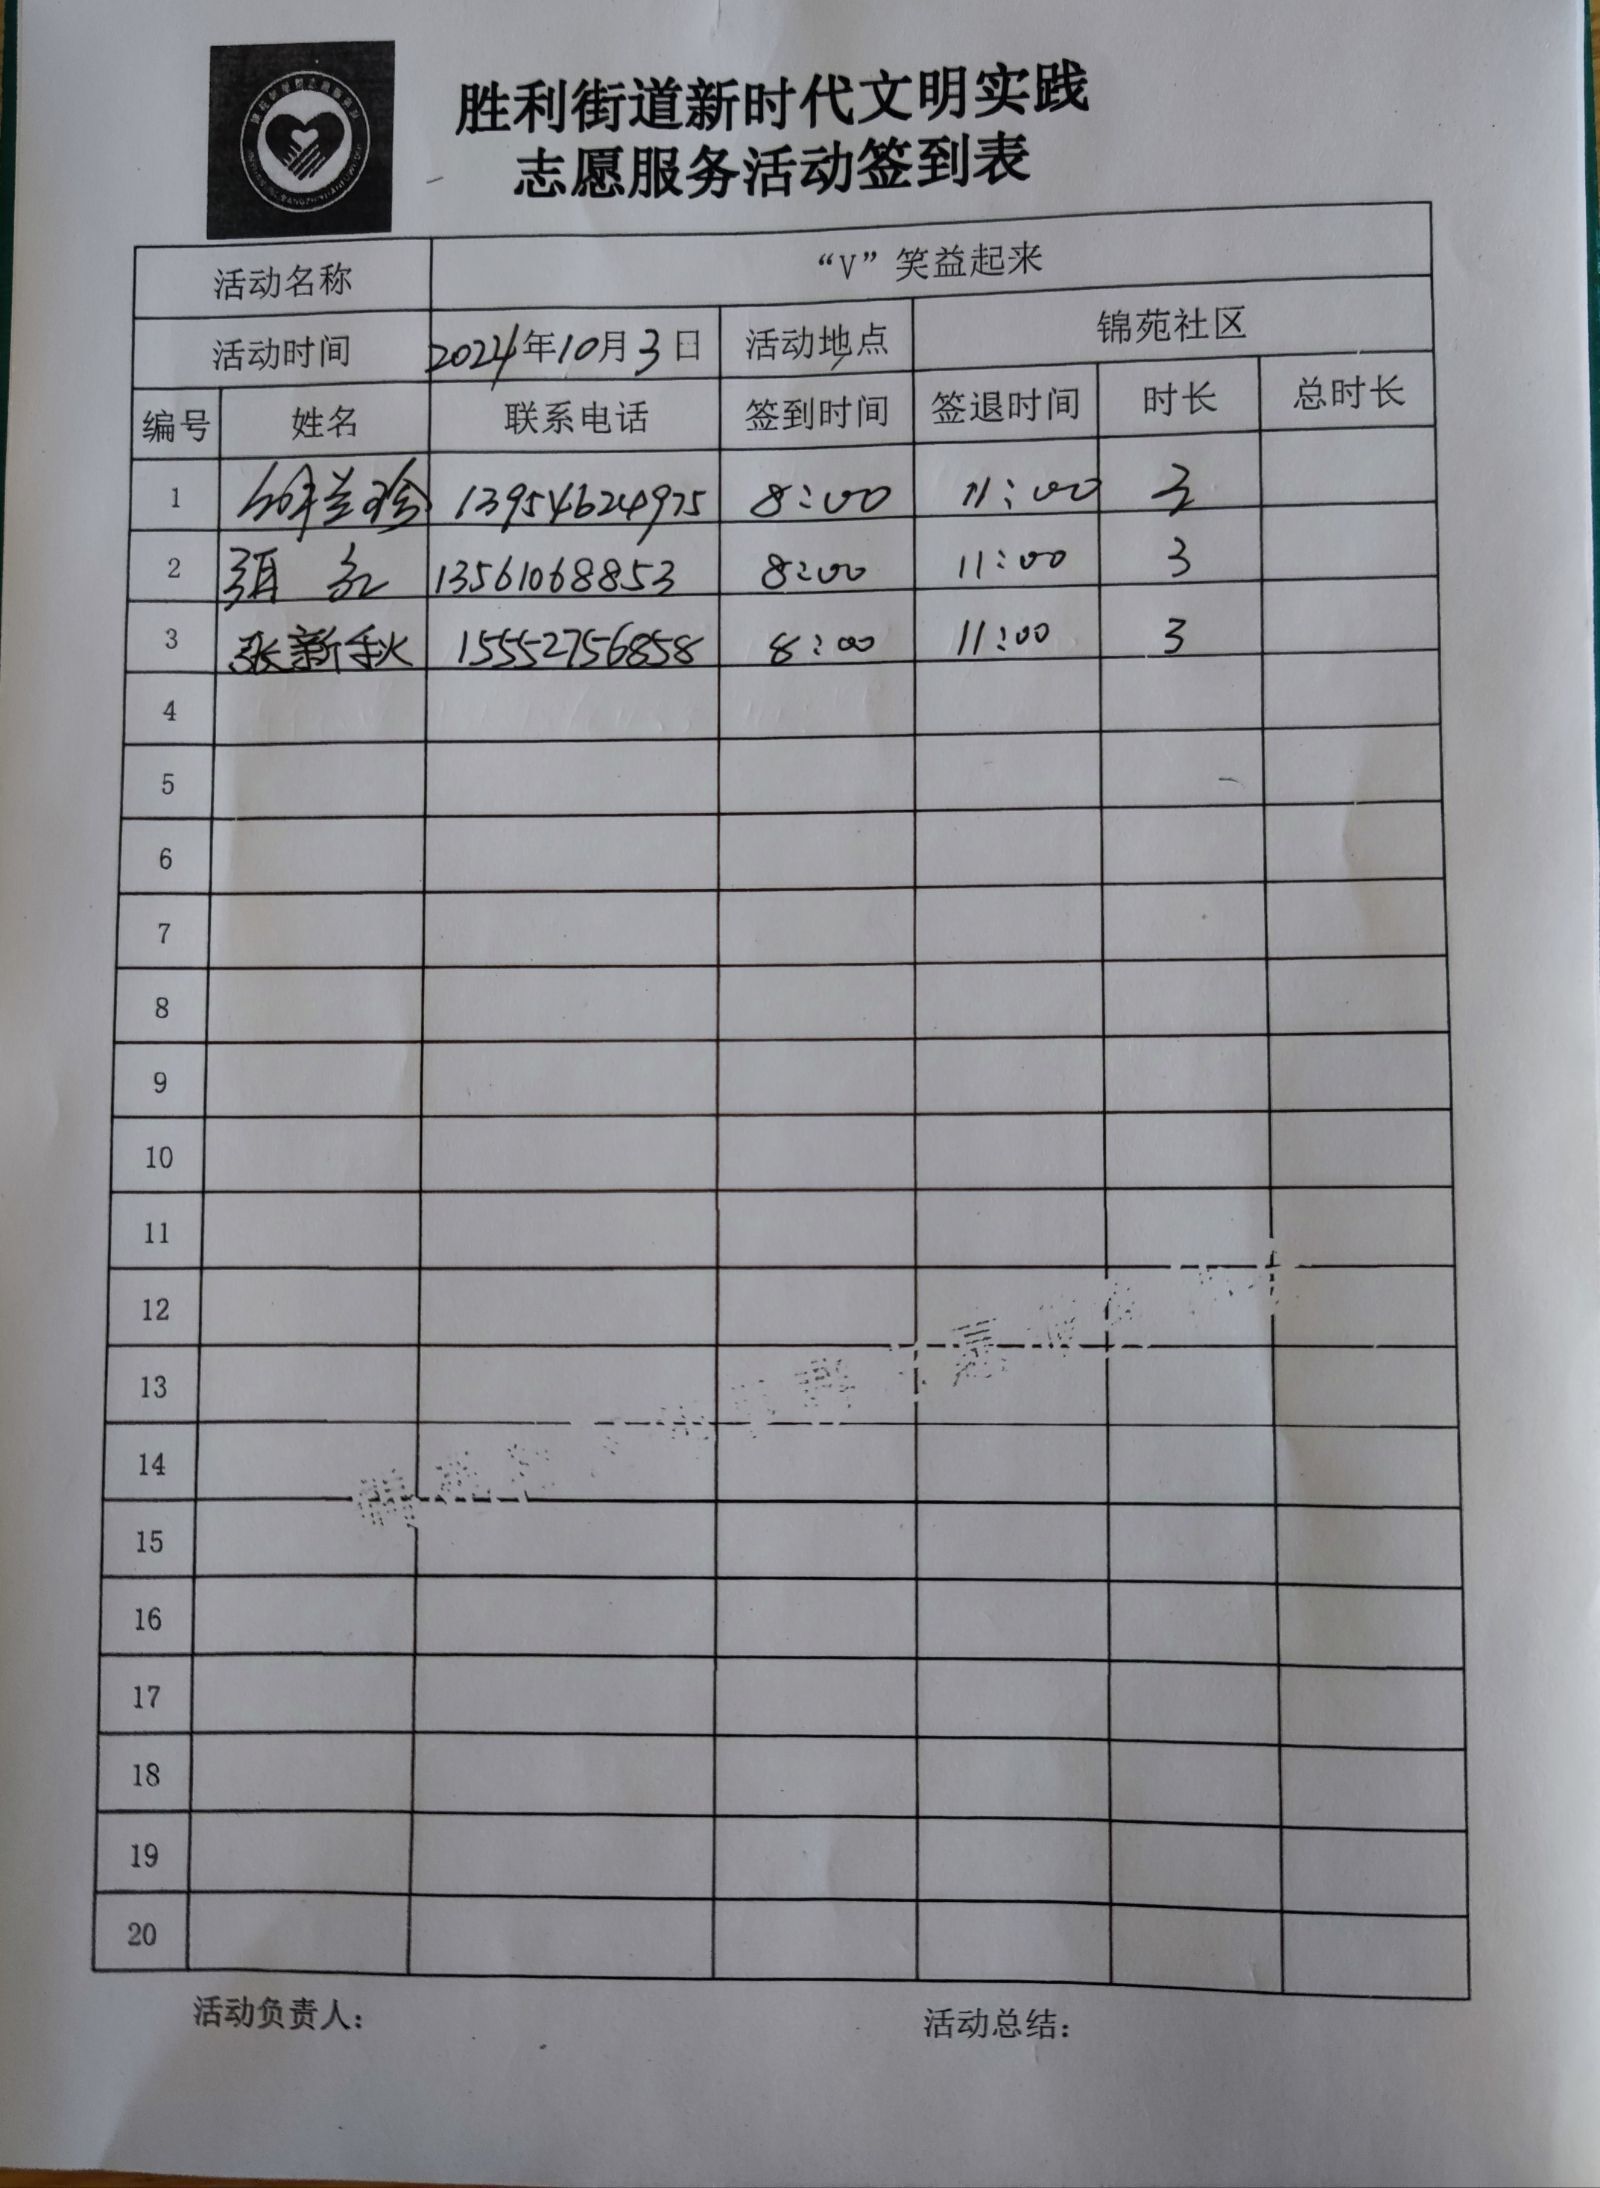 胜利街道新时代文明实践
志愿服务活动签到表
活动名称 “V”笑益起来
活动时间 2024年10月3日 活动地点 锦苑社区
编号 姓名 联系电话 签到时间 签退时间 时长 总时长
1 兰珍 13954624975 8:00 11:00 3
2 红 13561068853 8:00 11:00 3
3 张新秋 15552756858 8:00 11:00 3
4
5
6
7
8
9
10
11
12
13
14
15
16
17
18
19
20
活动负责人： 活动总结：